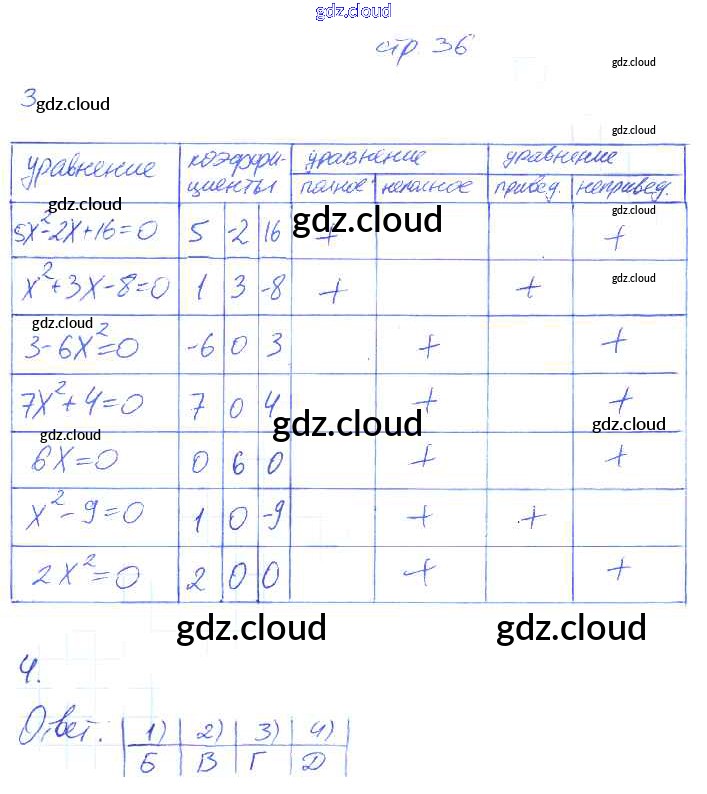 gdz.cloud
стр 36
gdz.cloud
3 gdz.cloud
gdz.cloud
уравнение коэффи- уравнение уравнение
циенты полное неполное привед. непривед.
gdz.cloud gdz.cloud gdz.cloud
5x²-2x+16=0 5 -2 16 + +
x²+3x-8=0 1 3 -8 + + gdz.cloud
gdz.cloud
3-6x²=0 -6 0 3 + +
7x²+4=0 7 0 4 + +
gdz.cloud gdz.cloud gdz.cloud
6x=0 0 6 0 + +
x²-9=0 1 0 -9 + +
2x²=0 2 0 0 + +
gdz.cloud gdz.cloud
4.
Ответ: 1) 2) 3) 4)
Б В Г Д